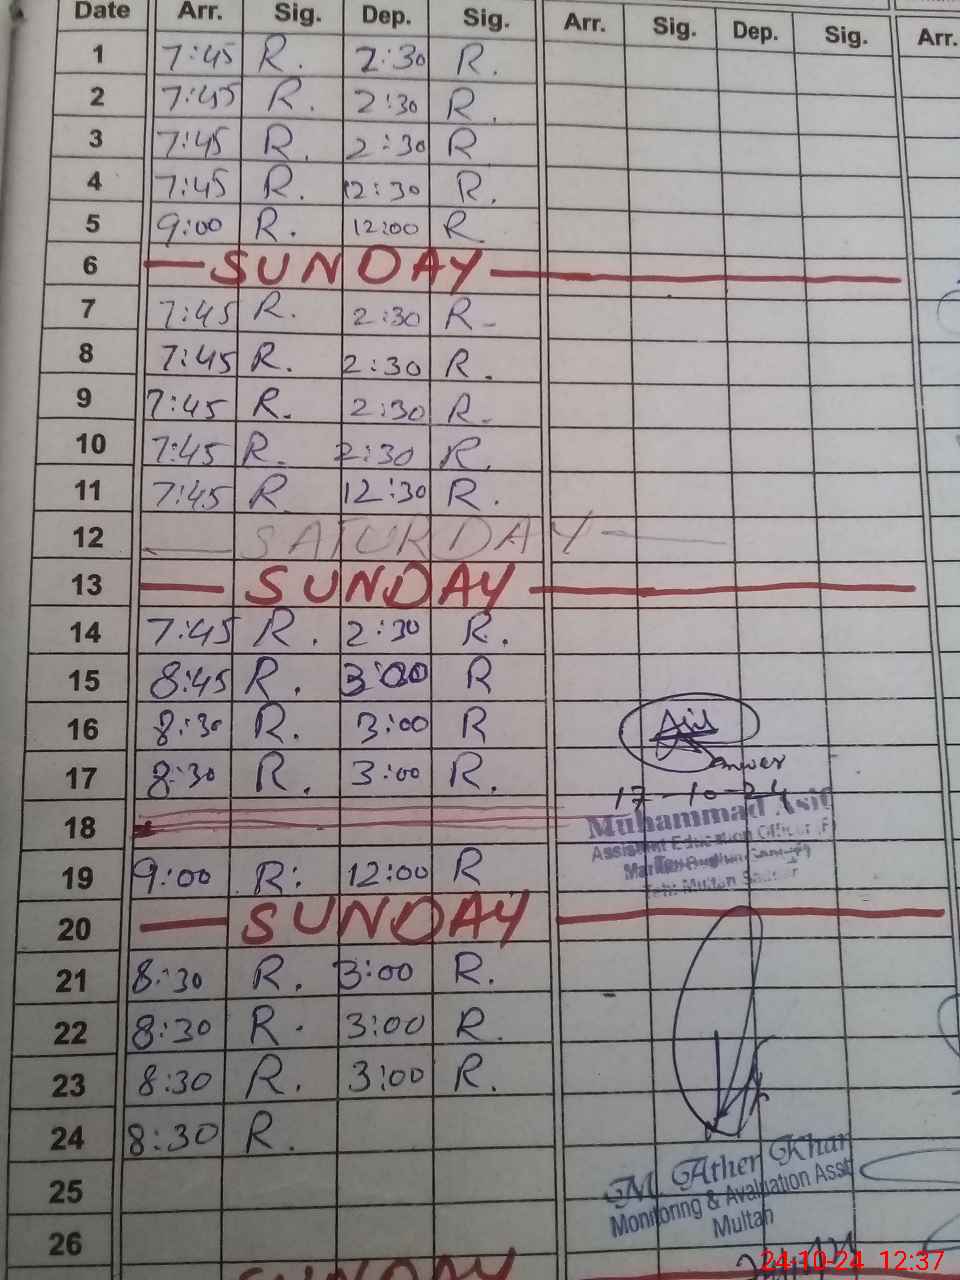 Date Arr. Sig. Dep. Sig. Arr. Sig. Dep. Sig. Arr.
1 7:45 R. 2:30 R.
2 7:45 R. 2:30 R.
3 7:45 R. 2:30 R
4 7:45 R. 12:30 R.
5 9:00 R. 12:00 R.
6 — SUNDAY —
7 7:45 R. 2:30 R-
8 7:45 R. 2:30 R.
9 7:45 R. 2:30 R-
10 7:45 R. 2:30 R.
11 7:45 R. 12:30 R.
12 — SATURDAY —
13 — SUNDAY —
14 7:45 R. 2:30 R.
15 8:45 R. 3:00 R
16 8:30 R. 3:00 R
17 8:30 R. 3:00 R.
17-10-24
Muhammad Asif
18
Assistant Education Officer (F)
19 9:00 R: 12:00 R
20 — SUNDAY —
21 8:30 R. 3:00 R.
22 8:30 R. 3:00 R.
23 8:30 R. 3:00 R.
24 8:30 R.
M. Ather Khan
25
Monitoring & Avaluation Asst
Multan
26
SUNDAY
24-10-24 12:37